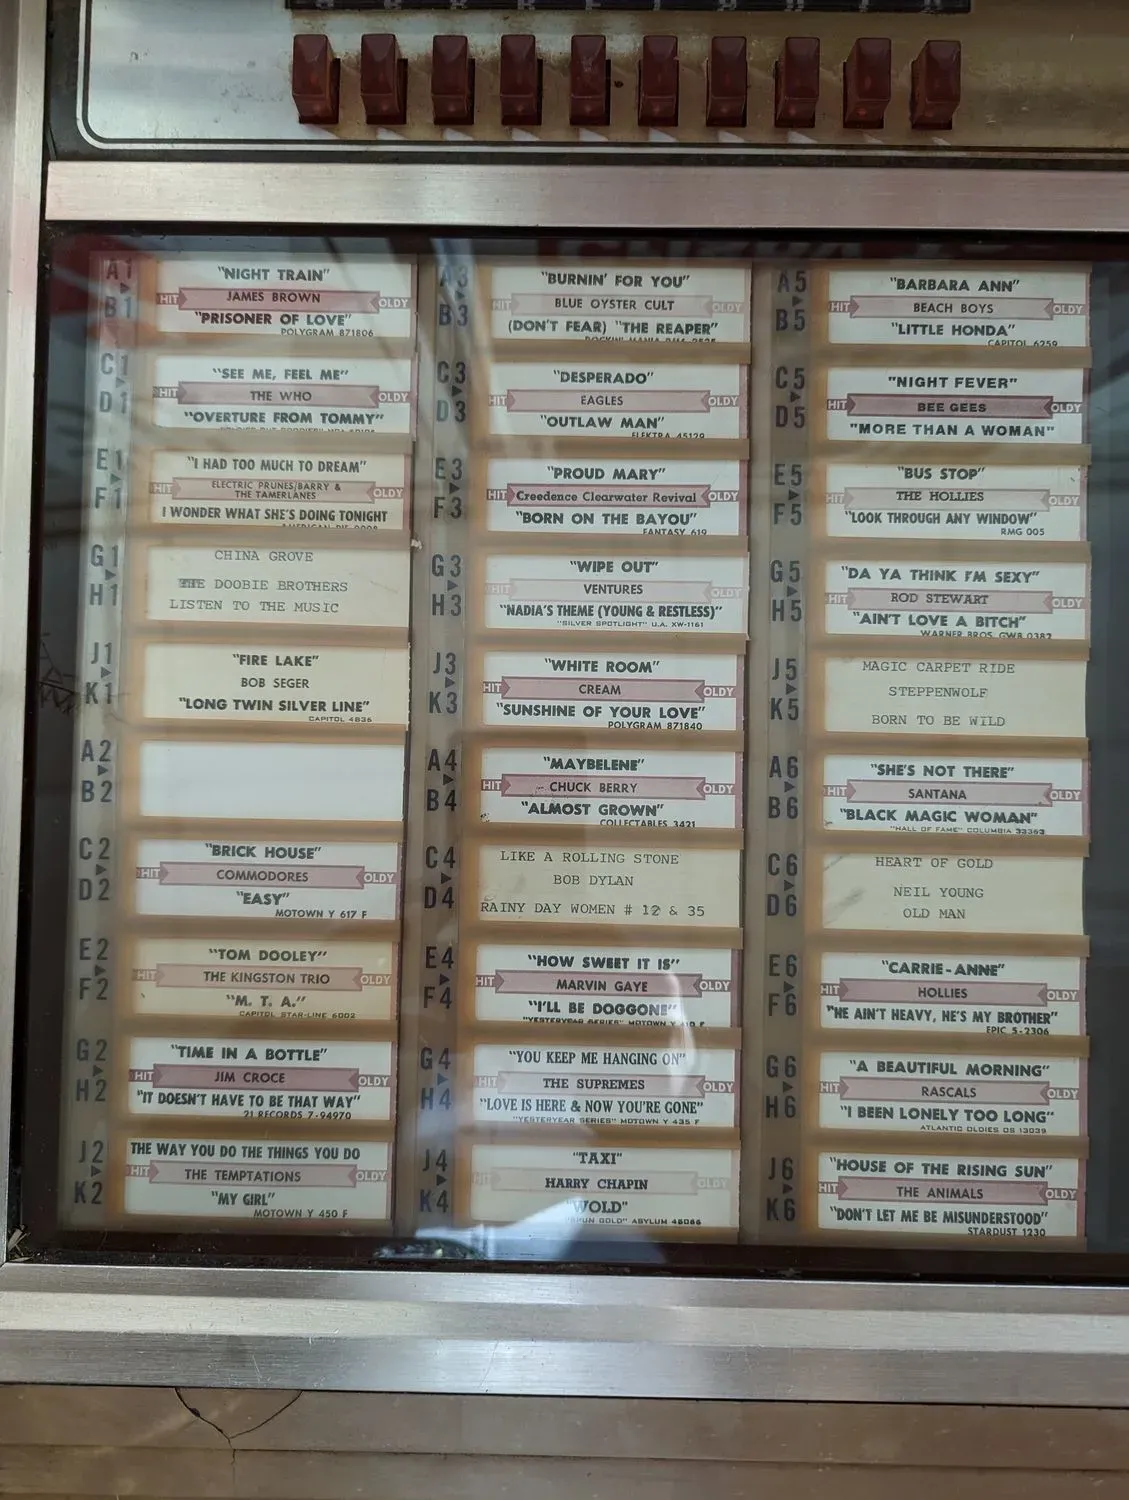 A1
B1
"NIGHT TRAIN"
HIT JAMES BROWN OLDY
"PRISONER OF LOVE"
POLYGRAM 871806
C1
D1
"SEE ME, FEEL ME"
HIT THE WHO OLDY
"OVERTURE FROM TOMMY"
E1
F1
"I HAD TOO MUCH TO DREAM"
HIT ELECTRIC PRUNES/BARRY & OLDY
THE TAMERLANES
I WONDER WHAT SHE'S DOING TONIGHT
G1
H1
CHINA GROVE
THE DOOBIE BROTHERS
LISTEN TO THE MUSIC
J1
K1
"FIRE LAKE"
BOB SEGER
"LONG TWIN SILVER LINE"
CAPITOL 4836
A2
B2
C2
D2
"BRICK HOUSE"
HIT COMMODORES OLDY
"EASY"
MOTOWN Y 617 F
E2
F2
"TOM DOOLEY"
HIT THE KINGSTON TRIO OLDY
"M. T. A."
CAPITOL STAR-LINE 6002
G2
H2
"TIME IN A BOTTLE"
HIT JIM CROCE OLDY
"IT DOESN'T HAVE TO BE THAT WAY"
21 RECORDS 7-94970
J2
K2
THE WAY YOU DO THE THINGS YOU DO
HIT THE TEMPTATIONS OLDY
"MY GIRL"
MOTOWN Y 450 F
A3
B3
"BURNIN' FOR YOU"
HIT BLUE OYSTER CULT OLDY
(DON'T FEAR) "THE REAPER"
C3
D3
"DESPERADO"
HIT EAGLES OLDY
"OUTLAW MAN"
ELEKTRA 45129
E3
F3
"PROUD MARY"
HIT Creedence Clearwater Revival OLDY
"BORN ON THE BAYOU"
FANTASY 619
G3
H3
"WIPE OUT"
HIT VENTURES OLDY
"NADIA'S THEME (YOUNG & RESTLESS)"
"SILVER SPOTLIGHT" U.A. XW-1161
J3
K3
"WHITE ROOM"
HIT CREAM OLDY
"SUNSHINE OF YOUR LOVE"
POLYGRAM 871840
A4
B4
"MAYBELENE"
HIT CHUCK BERRY OLDY
"ALMOST GROWN"
COLLECTABLES 3421
C4
D4
LIKE A ROLLING STONE
BOB DYLAN
RAINY DAY WOMEN # 12 & 35
E4
F4
"HOW SWEET IT IS"
HIT MARVIN GAYE OLDY
"I'LL BE DOGGONE"
"YESTERYEAR SERIES" MOTOWN Y
G4
H4
"YOU KEEP ME HANGING ON"
HIT THE SUPREMES OLDY
"LOVE IS HERE & NOW YOU'RE GONE"
"YESTERYEAR SERIES" MOTOWN Y 435 F
J4
K4
"TAXI"
HIT HARRY CHAPIN OLDY
"WOLD"
"SPUN GOLD" ASYLUM 45066
A5
B5
"BARBARA ANN"
HIT BEACH BOYS OLDY
"LITTLE HONDA"
CAPITOL 6259
C5
D5
"NIGHT FEVER"
HIT BEE GEES OLDY
"MORE THAN A WOMAN"
E5
F5
"BUS STOP"
HIT THE HOLLIES OLDY
"LOOK THROUGH ANY WINDOW"
RMG 005
G5
H5
"DA YA THINK I'M SEXY"
HIT ROD STEWART OLDY
"AIN'T LOVE A BITCH"
WARNER BROS. GWB 0382
J5
K5
MAGIC CARPET RIDE
STEPPENWOLF
BORN TO BE WILD
A6
B6
"SHE'S NOT THERE"
HIT SANTANA OLDY
"BLACK MAGIC WOMAN"
"HALL OF FAME" COLUMBIA 33363
C6
D6
HEART OF GOLD
NEIL YOUNG
OLD MAN
E6
F6
"CARRIE-ANNE"
HIT HOLLIES OLDY
"HE AIN'T HEAVY, HE'S MY BROTHER"
EPIC 5-2306
G6
H6
"A BEAUTIFUL MORNING"
HIT RASCALS OLDY
"I BEEN LONELY TOO LONG"
ATLANTIC OLDIES OS 13039
J6
K6
"HOUSE OF THE RISING SUN"
HIT THE ANIMALS OLDY
"DON'T LET ME BE MISUNDERSTOOD"
STARDUST 1230